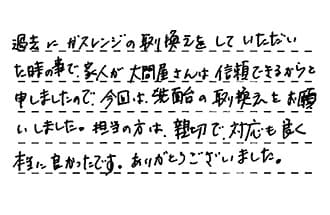 過去にガスレンジの取り換えをしていただい
た時の事で、家人が大問屋さんは信頼できるからと
申しましたので、今回は、洗面台の取り換えをお願
いしました。担当の方は、親切で、対応も良く
本当に良かったです。ありがとうございました。